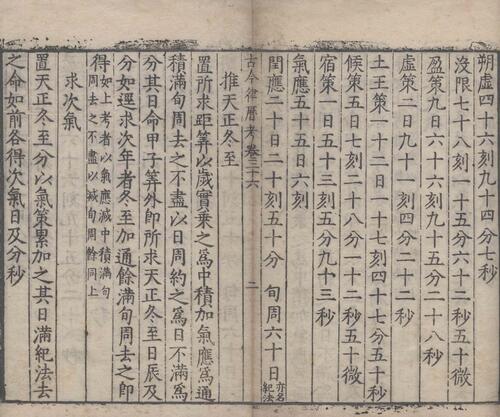 朔虛四十六刻九十四分七秒
沒限七十八刻一十五分六十二秒五十微
盈策九日六十六刻九十五分二十八秒
虛策二日九十一刻四分二十二秒
土王策一十二日一十四刻四十七分五十秒
候策五日七刻二十八分一十二秒五十微
宿策一日五十三刻五分九十三秒
氣應五十五日六刻
閏應二十日二十刻五十分 旬周六十日亦名紀法
古今律曆考卷三十六 二
推天正冬至
置所求距算以歲實乘之爲中積加氣應爲通
積滿旬周去之不盡以日周約之爲日不滿爲
分其日命甲子算外即所求天正冬至日辰及
分如逕求次年者冬至加通餘滿旬周去之即
得如上考者以氣應減中積滿旬周去之不盡以減旬周餘同上
求次氣
置天正冬至分以氣策累加之其日滿紀法去
之命如前各得次氣日及分秒